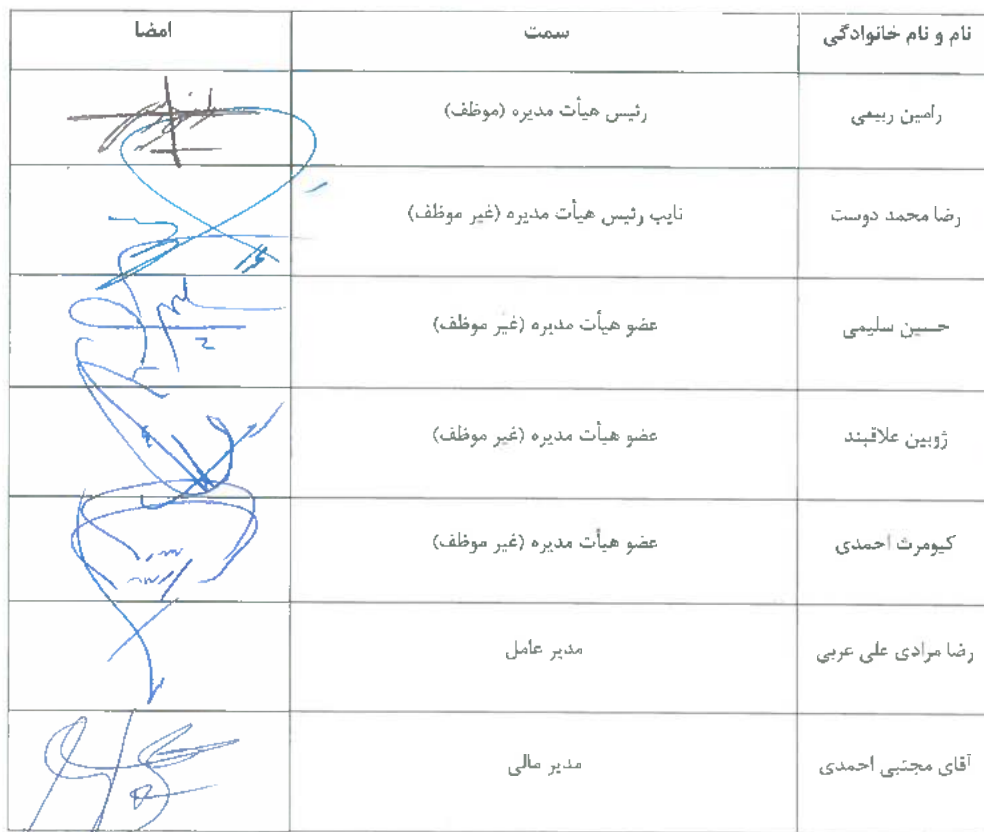 نام و نام خانوادگی	سمت	امضا
رامین ربیعی	رئیس هیأت مدیره (موظف)
رضا محمد دوست	نایب رئیس هیأت مدیره (غیر موظف)
حسین سلیمی	عضو هیأت مدیره (غیر موظف)
ژوبین علاقبند	عضو هیأت مدیره (غیر موظف)
کیومرث احمدی	عضو هیأت مدیره (غیر موظف)
رضا مرادی علی عربی	مدیر عامل
آقای مجتبی احمدی	مدیر مالی